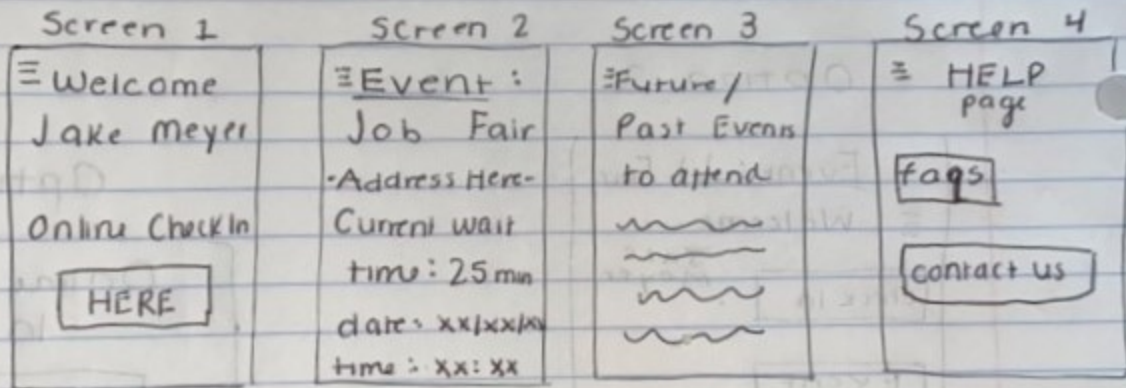 Screen 1
Welcome
Jake Meyer
Online Check In
HERE
Screen 2
Event:
Job Fair
-Address Here-
Current wait
time: 25 min
date: xx/xx/xx
time: xx:xx
Screen 3
Future/
Past Events
to attend
Screen 4
HELP
page
faqs
contact us